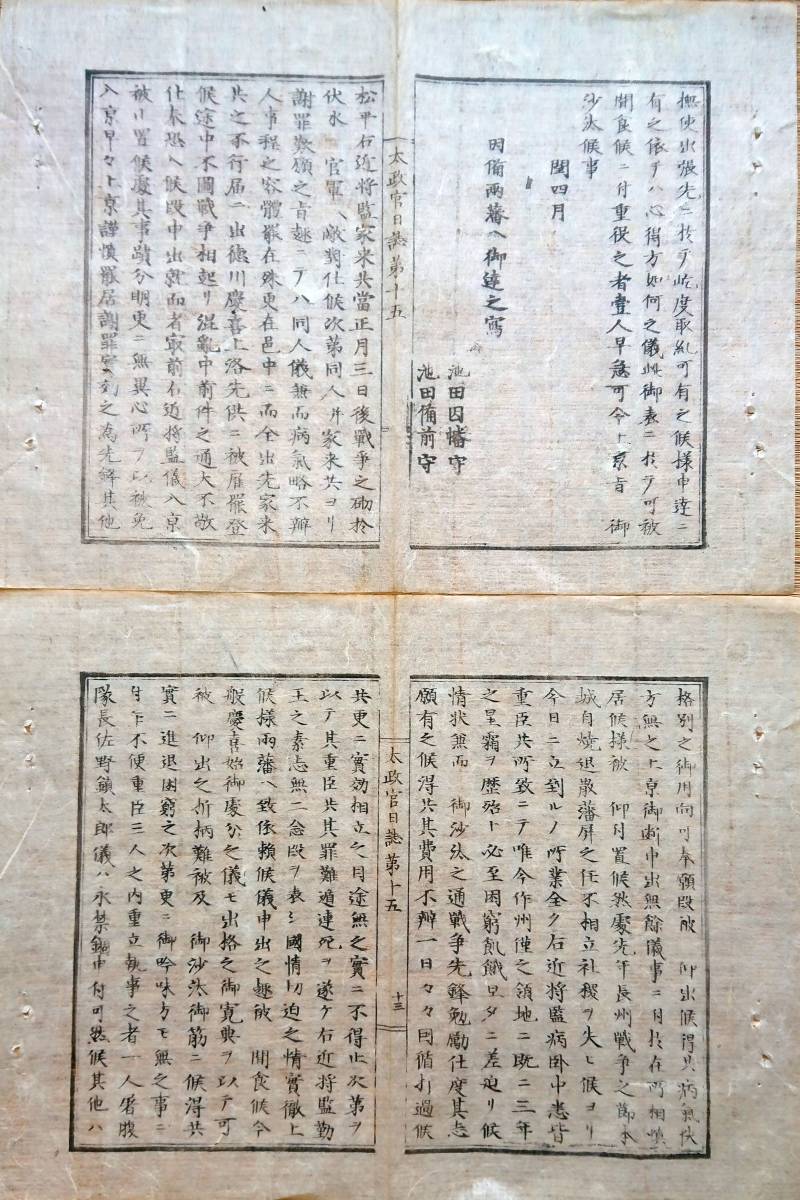 撫使出張先ニ於テ屹度取糺可有之候様申達ニ
有之依テハ心得方如何之儀此御表ニ於テ可被
聞食候ニ付重役之者壹人早急可令上京旨 御
沙汰候事
閏四月
因備両藩ヘ御達之寫
池田因幡守
池田備前守
太政官日誌第十五
松平右近将監家来共當正月三日後戦争之砌於
伏水 官軍ヘ敵對仕候次第同人并家来共ヨリ
謝罪歎願之旨趣ニテハ同人儀兼而病氣略不辨
人事程之容體罷在殊更在邑中ニ而全出先家来
共之不行届ニ出徳川慶喜上洛先供ニ被雇罷登
候途中不圖戦争相起リ混亂中前件之通大不敬
仕奉恐入候段申出就而者寂前右近将監儀入京
被止置候處其事蹟分明更ニ無異心所ヲ以被免
入京早々上京謹慎罷居謝罪實刻之為先鋒其他
格別之御用向可奉願段被 仰出候得共病氣伏
方無之上京御断申出無餘儀事ニ付於在所相慎
居候様被 仰付置候然處先年長州戦争之節本
城自焼退散藩屏之任不相立社稷ヲ失ヒ候ヨリ
今日ニ立到ルノ所業全ク右近将監病臥中悉皆
重臣共所致ニテ唯今作州僅之領地ニ既ニ三年
之星霜ヲ歴殆ト必至困窮飢餓旦夕ニ差迫リ候
情状兼而 御沙汰之通戦争先鋒勉勵仕度其志
願有之候得共其費用不辨一日々々因循打過候
太政官日誌第十五
十三
共更ニ實効相立之目途無之實ニ不得止次第ヲ
以テ其重臣共其罪難遁連死ヲ遂ケ右近将監勤
王之素志無二念段ヲ表シ國情切迫之情實徹上
候様両藩ヘ致依頼候儀申出之趣被 聞食候今
般慶喜始御處分之儀モ出格之御寛典ヲ以テ可
被 仰出之折柄難被及 御沙汰御筋ニ候得共
實ニ進退困窮之次第更ニ御吟味方モ無之事ニ
付乍不便重臣三人之内重立執事之者一人屠腹
隊長佐野鎮太郎儀ハ永禁錮申付可然候其他ハ